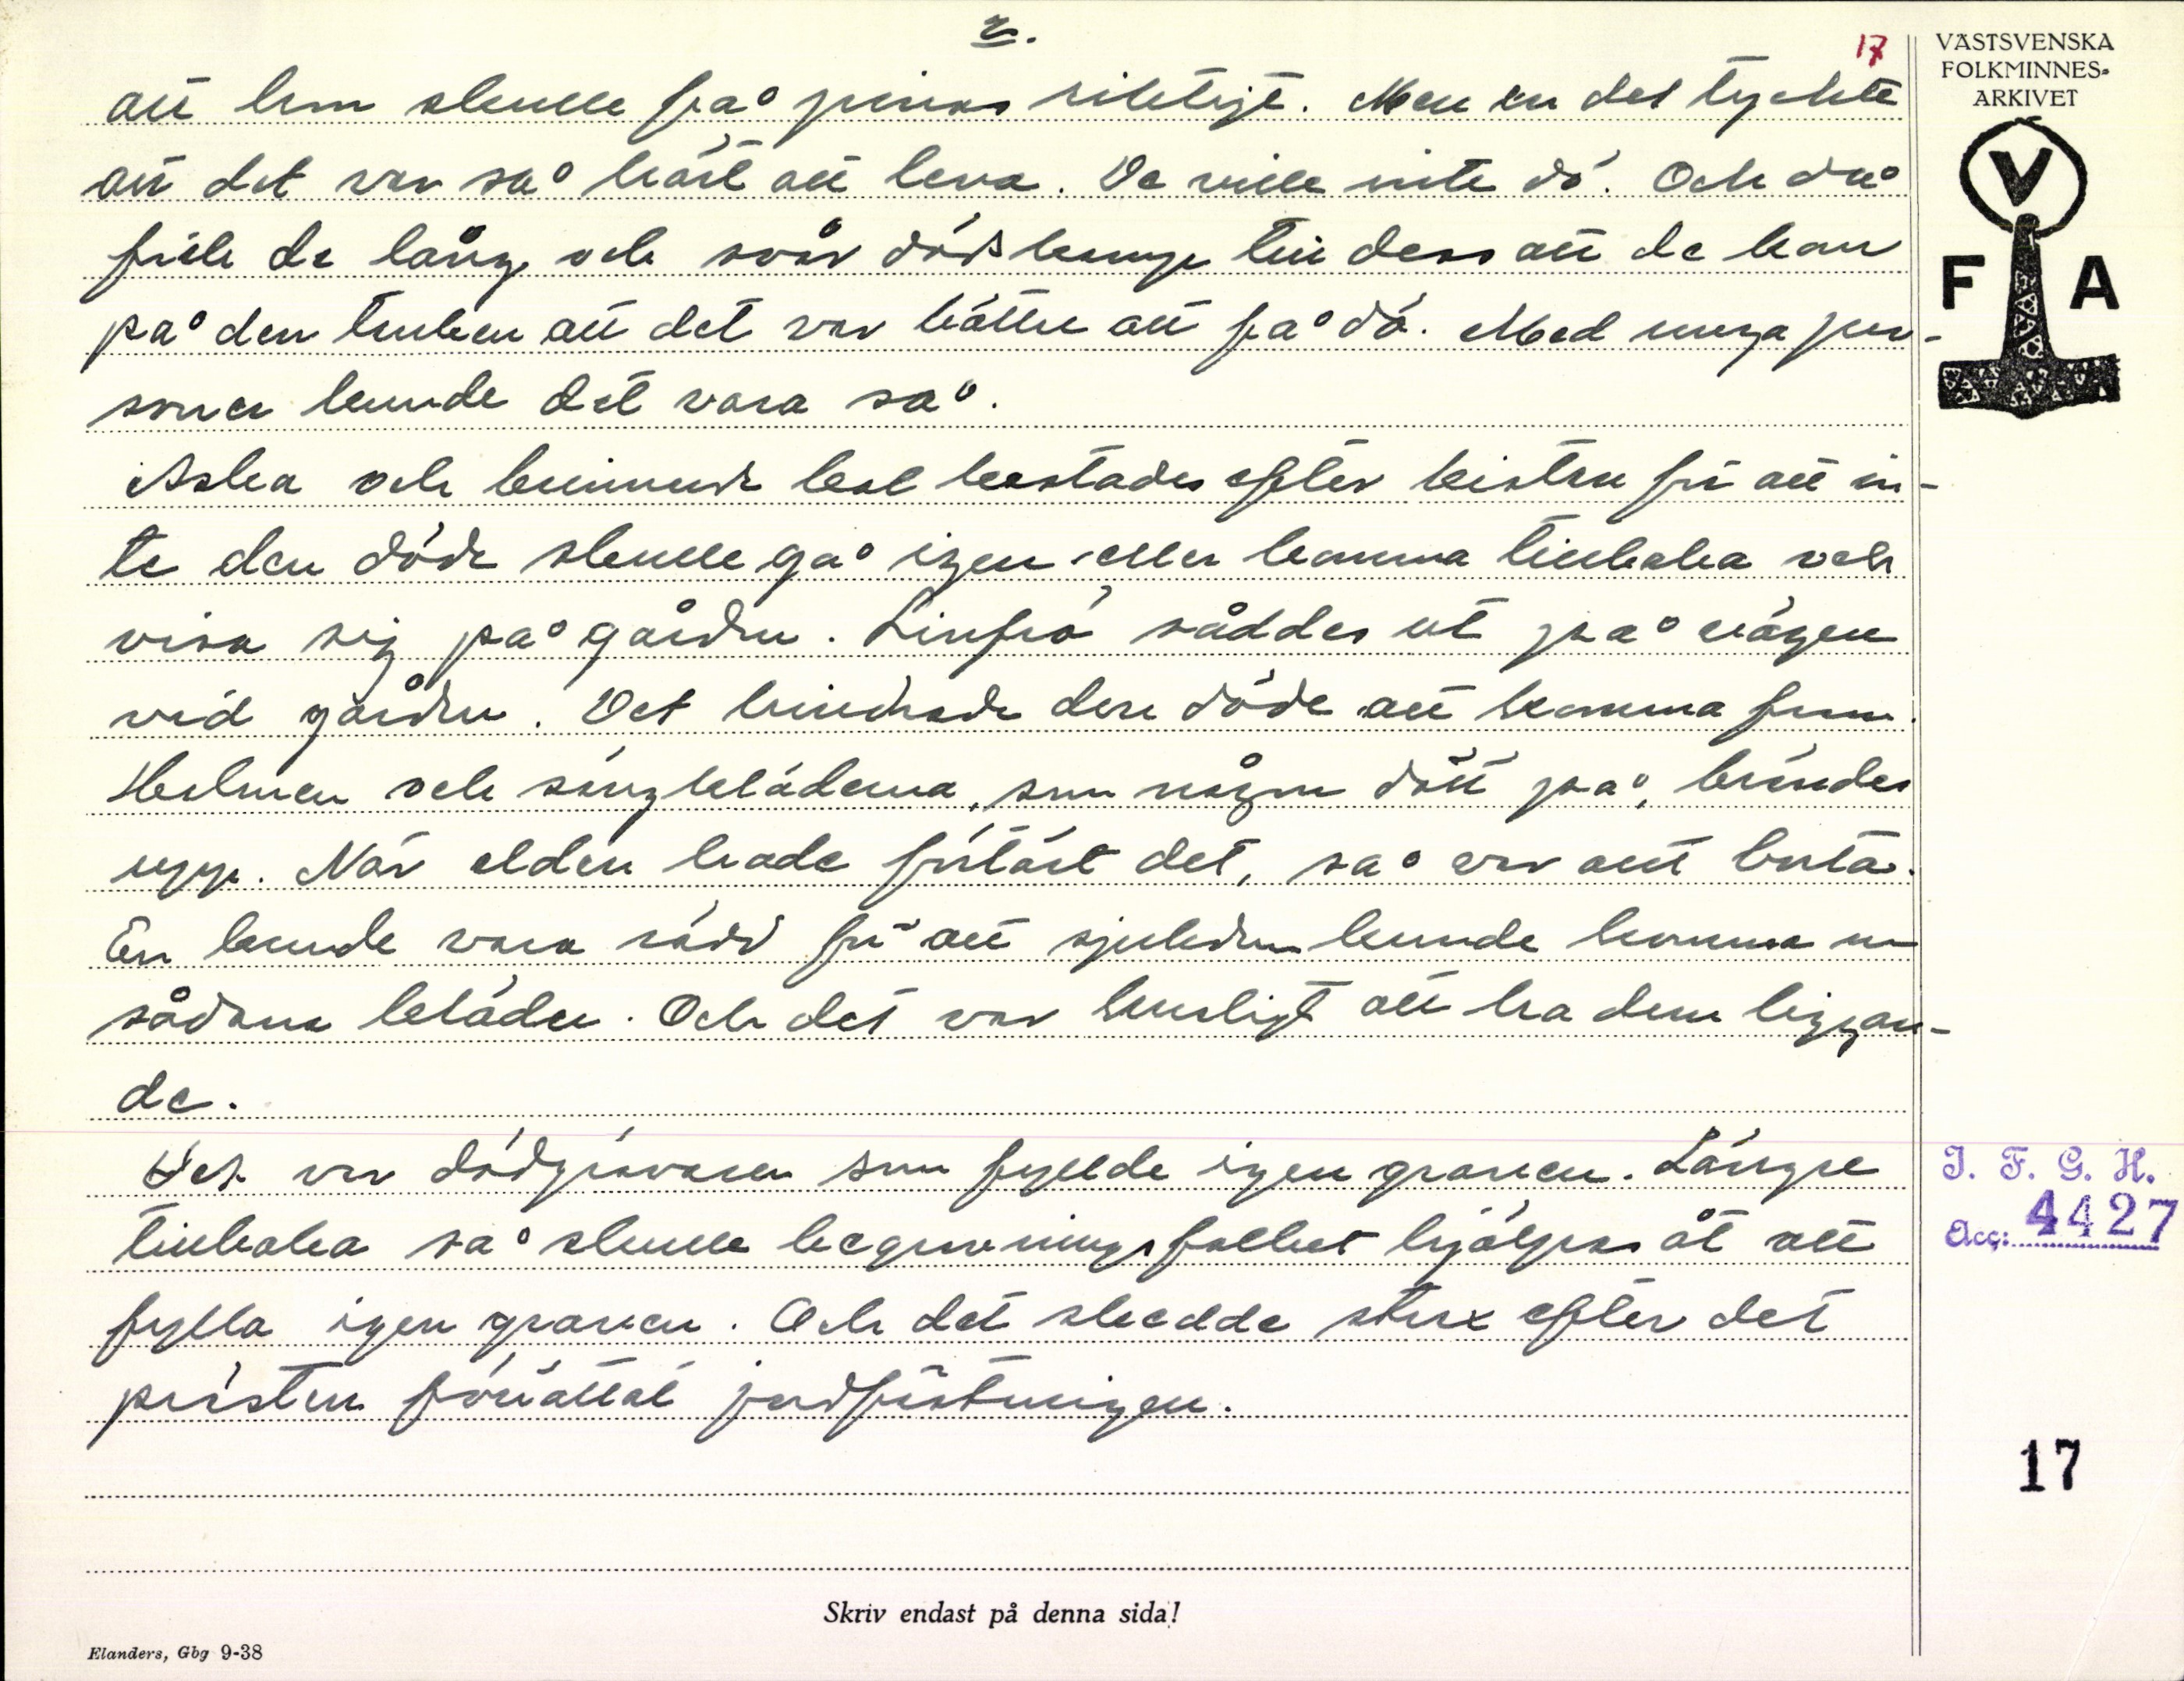 2.
17
att hon skulle få pinas riktigt. Men en del tyckte
att det var så bäst att leva. De ville inte dö. Och då
fick de lång och svår dödskamp till dess att de kom
på den tanken att det var bättre att få dö. Med unga per-
soner kunde det vara så.
Aska och brinnande kol kastades efter kistan för att in-
te den döde skulle gå igen eller komma tillbaka och
visa sig på gården. Linfrö såddes ut på vägen
vid gården. Det hindrade den döde att komma fram.
Halmen och sängkläderna, som någon dött på, brändes
upp. När elden hade förtärt det, så var allt borta.
En kunde vara rädd för att sjukdom kunde komma ur
sådana kläder. Och det var kusligt att ha dem liggan-
de.
Det var dödgrävaren som fyllde igen graven. Längre
tillbaka så skulle begravningsfolket hjälpas åt att
fylla igen graven. Och det skedde strax efter det
prästen förrättat jordfästningen.
VÄSTSVENSKA
FOLKMINNES-
ARKIVET
V
F A
I. F. G. H.
Acc: 4427
17
Skriv endast på denna sida!
Elanders, Gbg 9-38